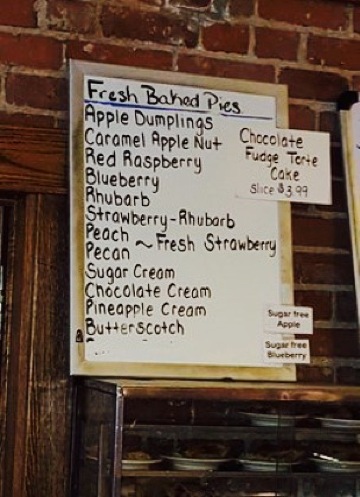 Fresh Baked Pies
Apple Dumplings
Caramel Apple Nut
Red Raspberry
Blueberry
Rhubarb
Strawberry-Rhubarb
Peach ~ Fresh Strawberry
Pecan
Sugar Cream
Chocolate Cream
Pineapple Cream
Butterscotch
Chocolate
Fudge Torte
Cake
Slice $3.99
Sugar free
Apple
Sugar free
Blueberry